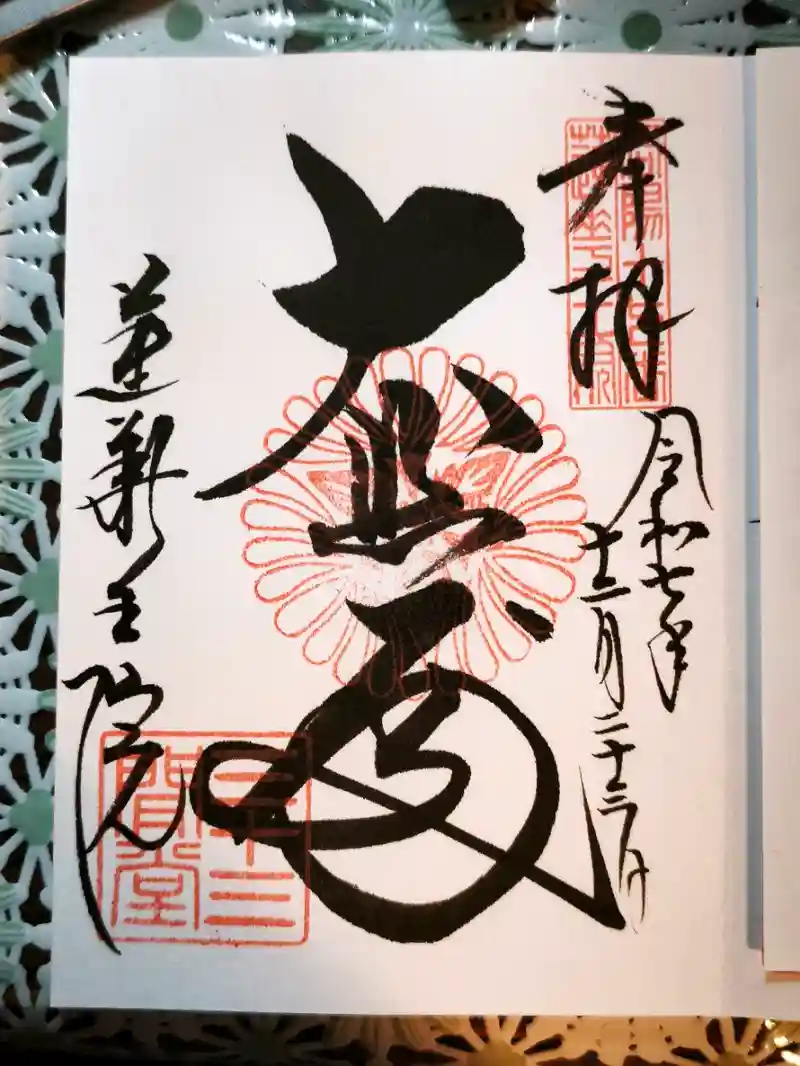 奉拝
令和七年
十二月二十三日
大悲殿
蓮華王院
三十三
間堂